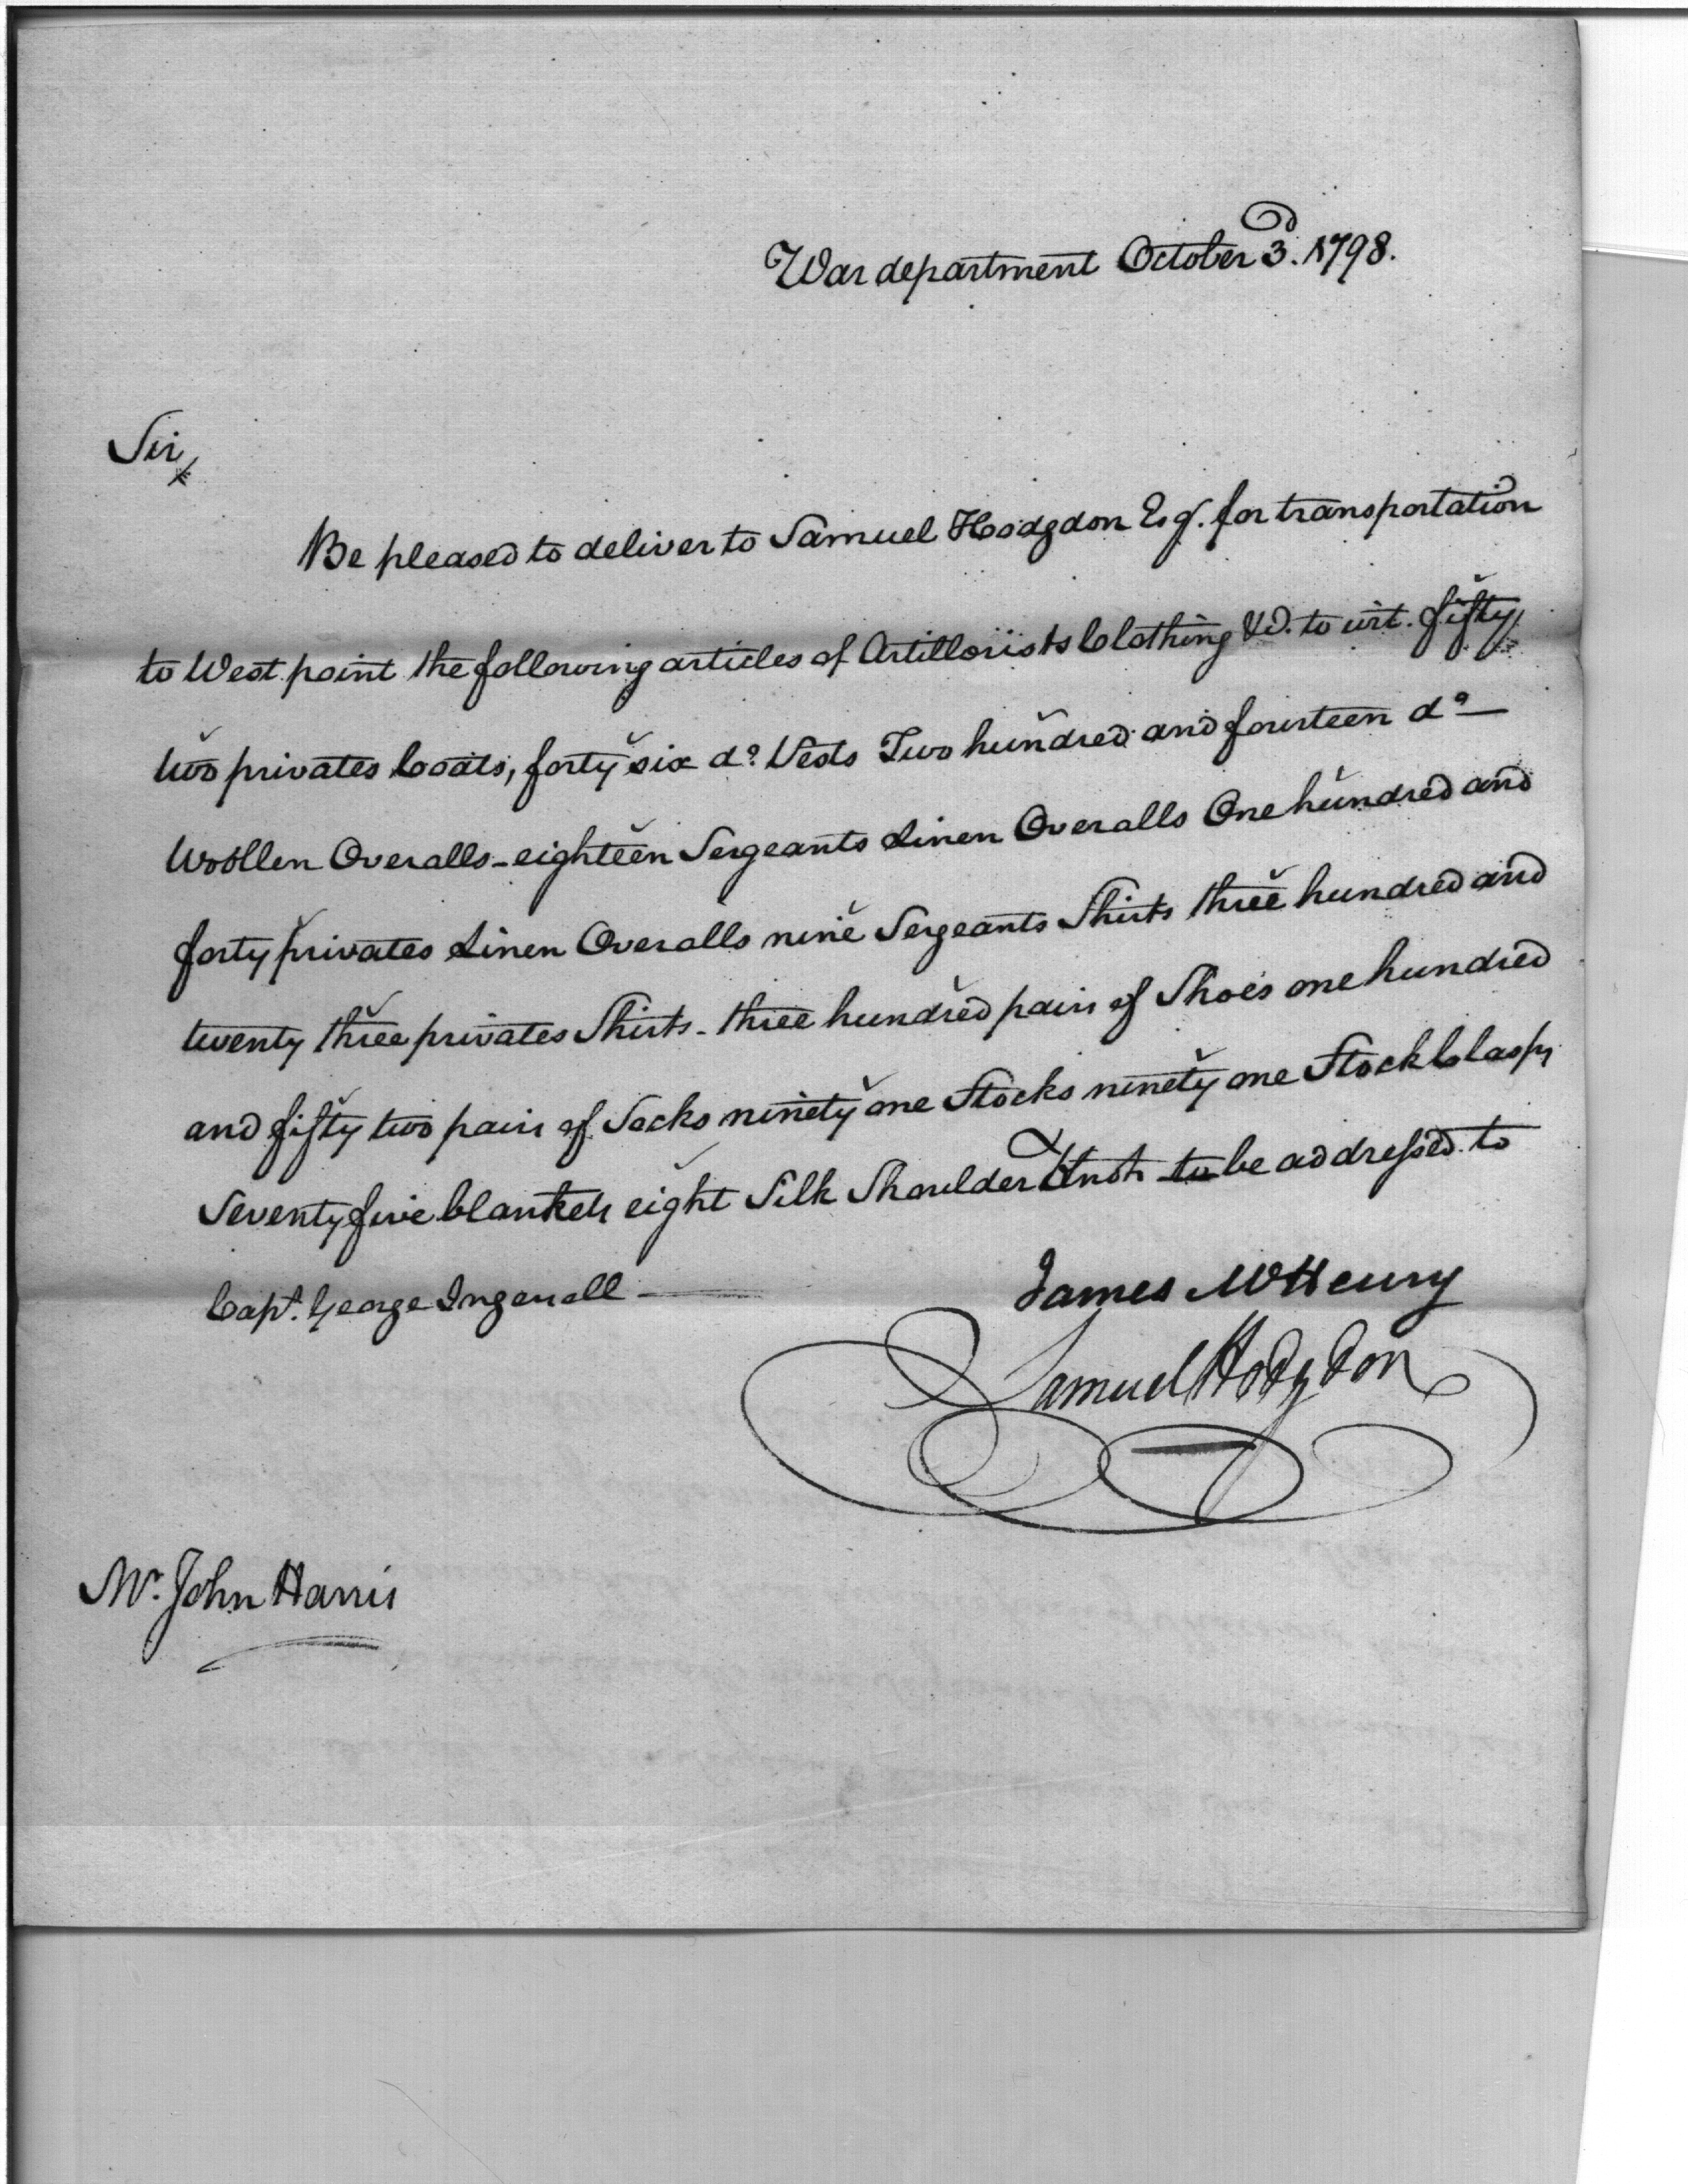 War department October 3d. 1798.
Sir,
Be pleased to deliver to Samuel Hodgdon Esq. for transportation
to West point the following articles of Artillerists Clothing &c. to wit. fifty
two privates Coats, forty six do. Vests Two hundred and fourteen do
Woollen Overalls - eighteen Sergeants Linen Overalls One hundred and
forty privates Linen Overalls nine Sergeants Shirts three hundred and
twenty three privates Shirts - three hundred pair of Shoes one hundred
and fifty two pair of Socks ninety one Stocks ninety one Stock Clasps
Seventy five blankets eight Silk Shoulder Knots to be addressed to
Capt. George Ingersoll
James McHenry
Samuel Hodgdon
Mr. John Harris